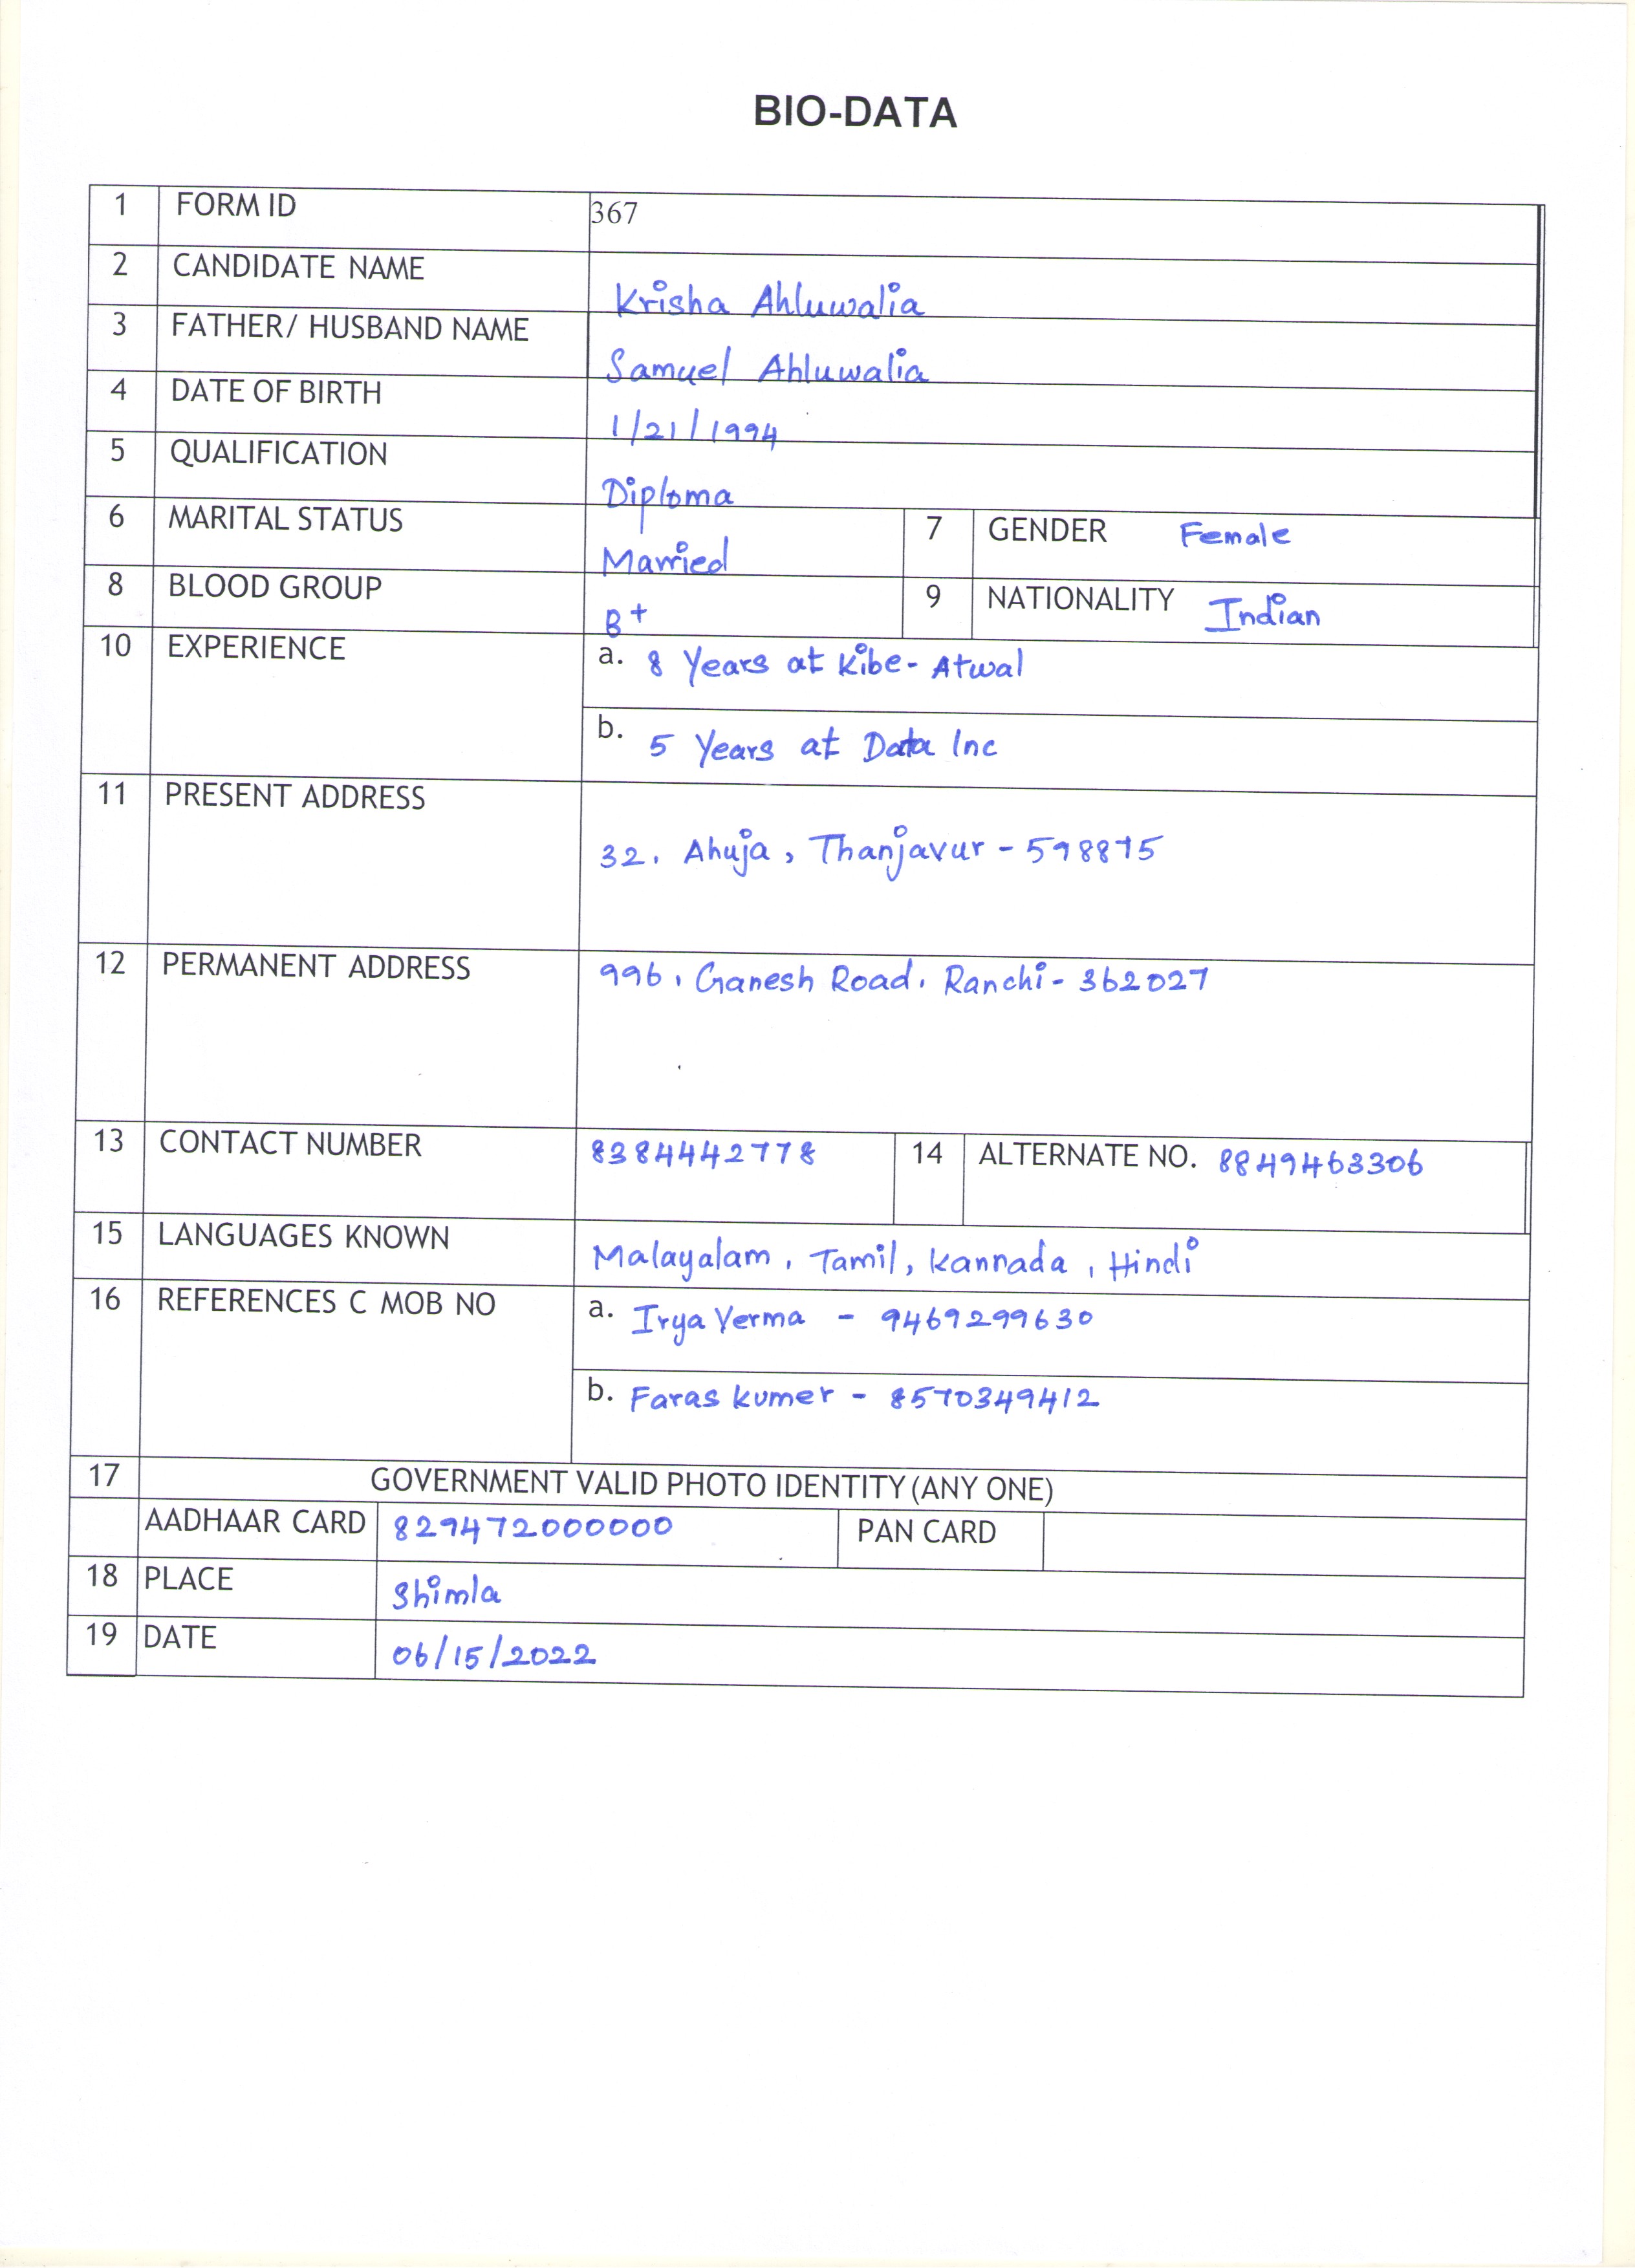 BIO-DATA
1 FORM ID 367
2 CANDIDATE NAME Krisha Ahluwalia
3 FATHER/ HUSBAND NAME Samuel Ahluwalia
4 DATE OF BIRTH 1/21/1994
5 QUALIFICATION Diploma
6 MARITAL STATUS Married 7 GENDER Female
8 BLOOD GROUP B+ 9 NATIONALITY Indian
10 EXPERIENCE a. 8 Years at Kibe- Atwal
b. 5 Years at Data Inc
11 PRESENT ADDRESS
32, Ahuja, Thanjavur - 598875
12 PERMANENT ADDRESS 996, Ganesh Road, Ranchi - 362027
13 CONTACT NUMBER 8384442778 14 ALTERNATE NO. 8849463306
15 LANGUAGES KNOWN Malayalam, Tamil, Kannada, Hindi
16 REFERENCES C MOB NO a. Irya Verma - 9469299630
b. Faras kumer - 8570349412
17 GOVERNMENT VALID PHOTO IDENTITY (ANY ONE)
AADHAAR CARD 829472000000 PAN CARD
18 PLACE Shimla
19 DATE 06/15/2022